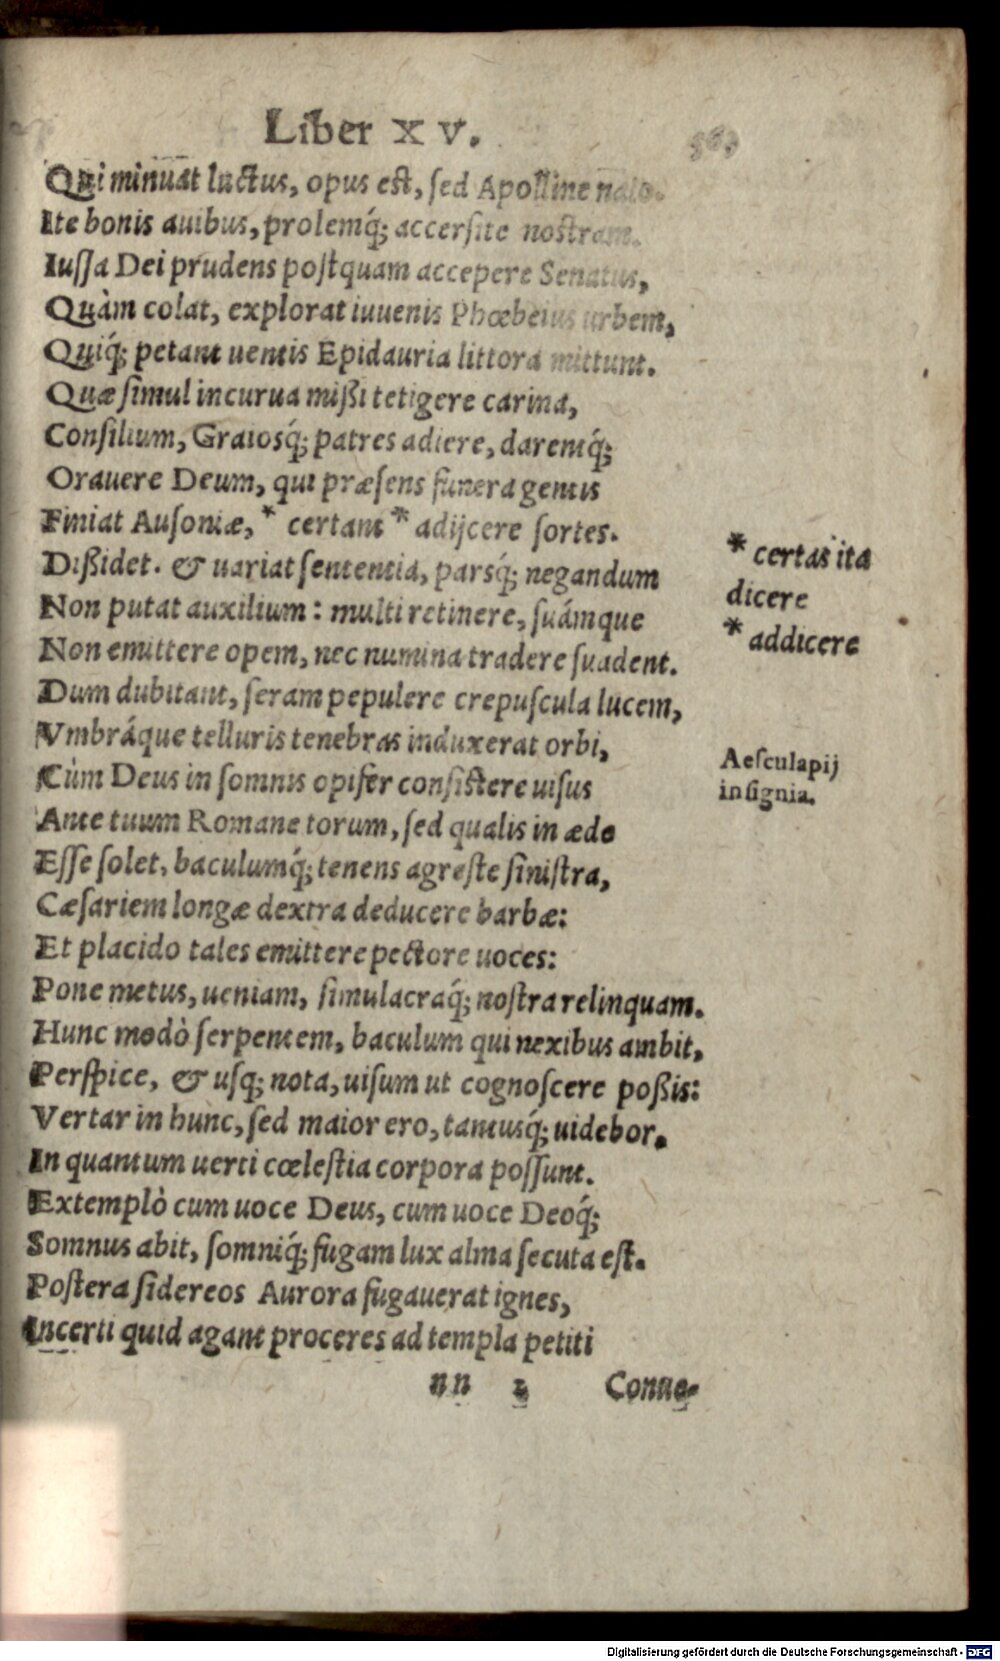 Liber XV.
Qui minuat luctus, opus est, sed Apolline nato.
Ite bonis auibus, prolemq́; accersite nostram.
Iussa Dei prudens postquam accepere Senatus,
Quàm colat, explorat iuuenis Phœbeius urbem,
Quiq́; petant uentis Epidauria littora mittunt.
Quæ simul incurua mißi tetigere carina,
Consilium, Graiosq́; patres adiere, daremq́;
Orauere Deum, qui præsens funera gentis
Finiat Ausoniæ, * certant * adijcere sortes.
Dißidet. & uariat sententia, parsq́; negandum
Non putat auxilium: multi retinere, suámque
Non emittere opem, nec numina tradere suadent.
Dum dubitant, seram pepulere crepuscula lucem,
Vmbráque telluris tenebras induxerat orbi,
Cùm Deus in somnis opifer consistere uisus
Ante tuum Romane torum, sed qualis in æde
Esse solet, baculumq́; tenens agreste sinistra,
Cæsariem longæ dextra deducere barbæ:
Et placido tales emittere pectore uoces:
Pone metus, ueniam, simulacraq́; nostra relinquam.
Hunc modò serpentem, baculum qui nexibus ambit,
Perspice, & usq; nota, uisum ut cognoscere poßis:
Vertar in hunc, sed maior ero, tantusq́; uidebor.
In quantum uerti cœlestia corpora possunt.
Extemplò cum uoce Deus, cum uoce Deoq́;
Somnus abit, somniq́; fugam lux alma secuta est.
Postera sidereos Aurora fugauerat ignes,
Incerti quid agant proceres ad templa petiti
nn 2 Conue-
* certas ita
dicere
* addicere
Aesculapij
insignia.
Digitalisierung gefördert durch die Deutsche Forschungsgemeinschaft - DFG